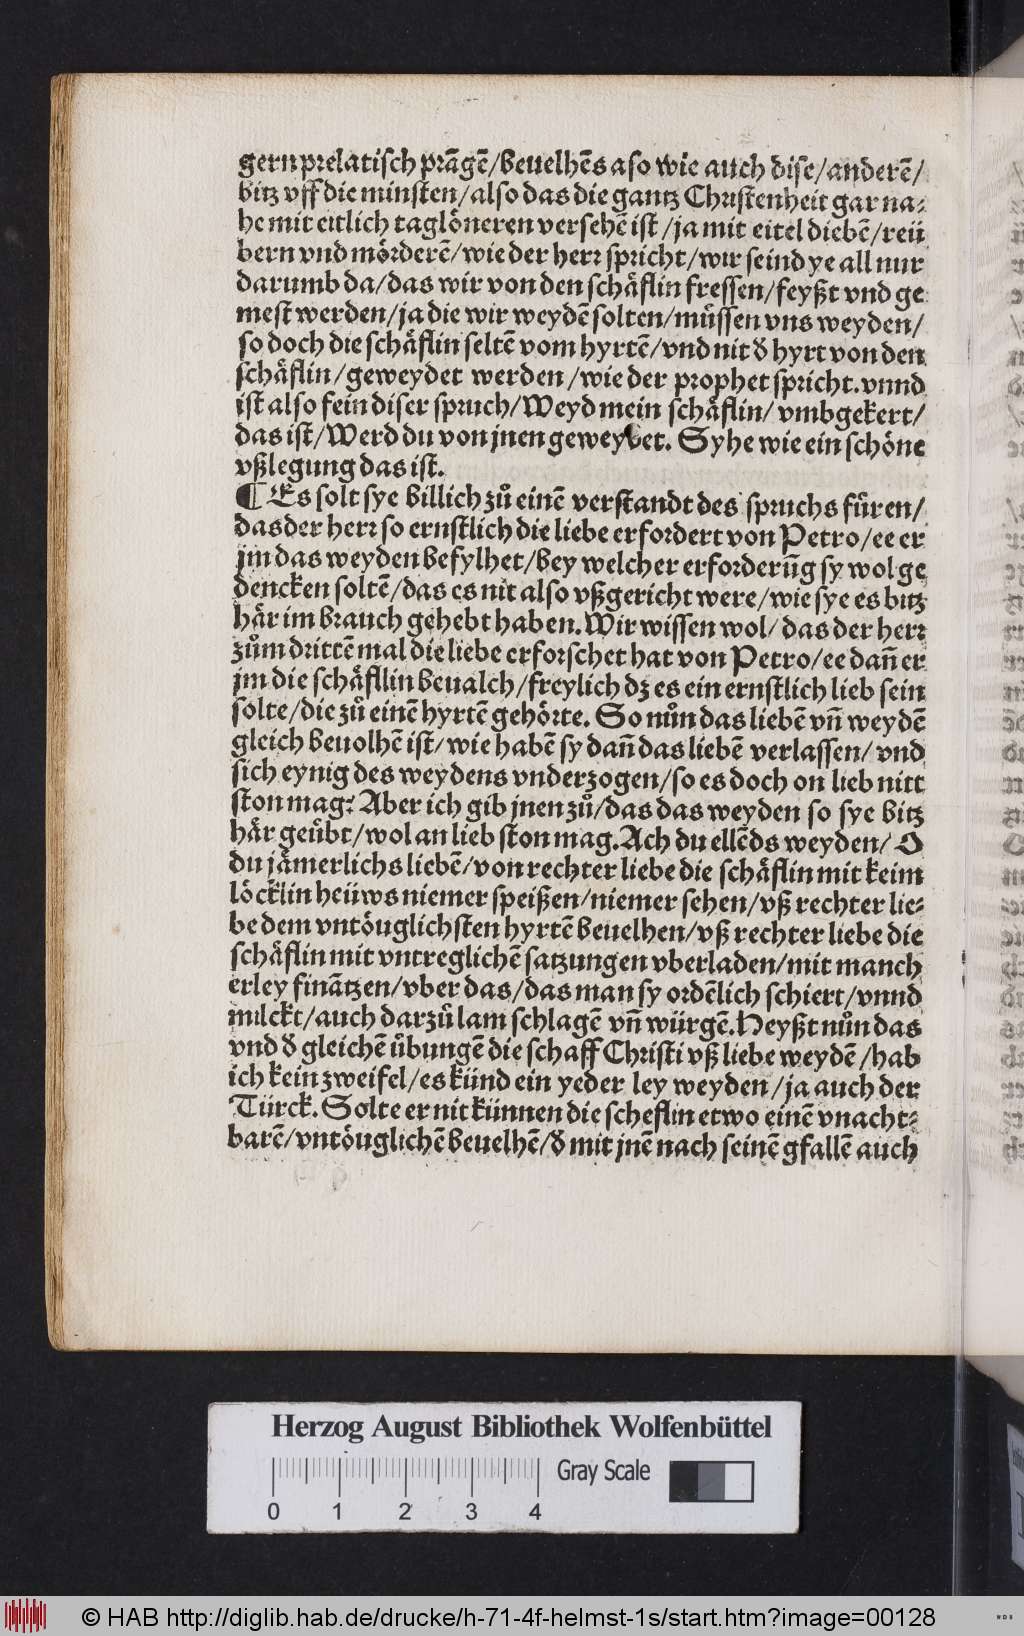 gern prelatisch prāgē/beuelhēs aso wie auch dise/anderē/
bitz vff die minsten/also das die gantz Christenheit gar na⸗
he mit eitlich taglöneren versehē ist/ja mit eitel diebē/reü
bern vnd mörderē/wie der herr spricht/wir seind ye all nur
darumb da/das wir von den schäflin fressen/feyßt vnd ge
mest werden/ja die wir weydē solten/müssen vns weyden/
so doch die schäflin seltē vom hyrtē/vnd nit ð hyrt von den
schäflin/geweydet werden/wie der prophet spricht.vnnd
ist also fein diser spruch/Weyd mein schäflin/vmbgekert/
das ist/Werd du von jnen geweydet. Syhe wie ein schöne
vßlegung das ist.
¶ Es solt sye billich zů einē verstandt des spruchs füren/
das der herr so ernstlich die liebe erfordert von Petro/ee er
jm das weyden befylhet/bey welcher erforderūg sy wol ge
dencken soltē/das es nit also vßgericht were/wie sye es bitz
här im brauch gehebt haben.Wir wissen wol/das der herr
zům drittē mal die liebe erforschet hat von Petro/ee dañ er
jm die schäfllin beualch/freylich dz es ein ernstlich lieb sein
solte/die zů einē hyrtē gehörte. So nůn das liebē vñ weydē
gleich beuolhē ist/wie habē sy dañ das liebē verlassen/vnd
sich eynig des weydens vnderzogen/so es doch on lieb nitt
ston mag? Aber ich gib jnen zů/das das weyden so sye bitz
här geübt/wol an lieb ston mag.Ach du ellēds weyden/O
du jämerlichs liebē/von rechter liebe die schäflin mit keim
löcklin heüws niemer speißen/niemer sehen/vß rechter lie⸗
be dem vntöuglichsten hyrtē beuelhen/vß rechter liebe die
schäflin mit vntreglichē satzungen vberladen/mit manch
erley finātzen/vber das/das man sy ordēlich schiert/vnnd
milckt/auch darzů lam schlagē vñ würgē.Heyßt nůn das
vnd ð gleichē übungē die schaff Christi vß liebe weydē/hab
ich kein zweifel/es künd ein yeder ley weyden/ja auch der
Türck. Solte er nit künnen die scheflin etwo einē vnacht⸗
barē/vntöuglichē beuelhē/ð mit jnē nach seinē gfallē auch
Herzog August Bibliothek Wolfenbüttel
Gray Scale
0 1 2 3 4
© HAB http://diglib.hab.de/drucke/h-71-4f-helmst-1s/start.htm?image=00128